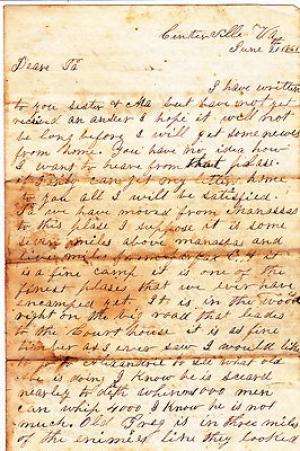 Centerville Va
June 21st 1861
Deare Pa
I have written
to you sister & Ma but have not yet
recieved an answer I hope it will not
be long before I will get some newes
from home. You have no idea how
I want to heare from that plase.
can get one letter home
to you all I will be satisfied.
Pa we have moved from Manassas
to this plase I suppose it is some
seven miles above manassa and
miles from C. H. it
is a fine camp it is one of the
finest plases that we ever have
encamped yet. It is in the woods
right on the big road that leades
to the Court house it is as fine
timber as I ever saw I would like
to go to Alexandria to see what old
Abe is doing I know he is sceard
nearley to deth when 1000 men
can whip 4000 I know he is not
much. Old Greg is in three miles
of the enemies line they looked